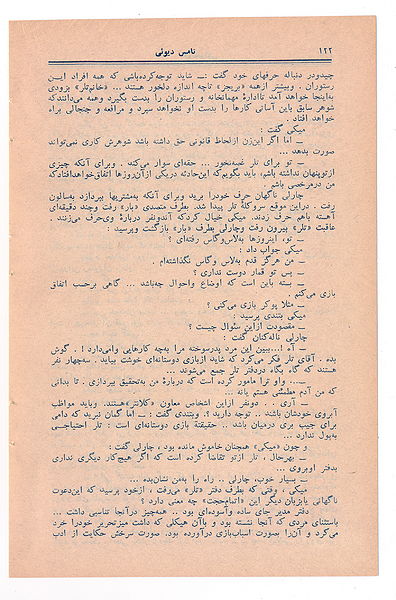 ۱۲۲
تامس دیوئی
چیدودر دنباله حرفهای خود گفت :ــ شاید توجه‌کرده‌باشی که همه افراد این
رستوران . وبیشتر ازهمه «بریجز» تاچه اندازه دلخور هستند ... «خانم‌تلر» بزودی
به‌اینجا خواهد آمد تاادارهٔ مهمانخانه و رستوران را بدست بگیرد وهمه می‌دانندکه
شوهر سابق باین آسانی کارها را بدست او نخواهد سپرد و مرافعه و جنجالی براه
خواهد افتاد .
میکی گفت :
ــ اما اگر این‌زن ازلحاظ قانونی حق داشته باشد شوهرش کاری نمی‌تواند
صورت بدهد ...
ــ تو برای تلر غصه‌نخور ... حقه‌ای سوار می‌کند . وبرای آنکه چیزی
ازتوپنهان نداشته باشم، باید بگویم‌که این‌حادثه دریکی ازآن‌روزها اتفاق‌خواهدافتادکه
من درمرخصی باشم
چارلی ناگهان حرف خودرا برید وبرای آنکه به‌مشتریها بپردازد به‌سالون
رفت . دراین موقع سروکلهٔ تلر پیدا شد. بطرف متصدی «بار» رفت وچند دقیقه‌ای
آهسته باهم حرف زدند. میکی خیال کردکه آندونفر دربارهٔ وی‌حرف می‌زنند .
عاقبت «تلر» بیرون رفت وچارلی بطرف «بار» بازگشت وپرسید :
ــ تو، اینروزها به‌لاس‌وگاس رفته‌ای ؟
میکی جواب داد :
ــ من هرگز قدم به‌لاس وگاس نگذاشته‌ام .
ــ پس تو قمار دوست نداری ؟
ــ بسته باین است که اوضاع واحوال چه‌باشد ... گاهی برحسب اتفاق
بازی می‌کنم
ــ مثلا پوکر بازی می‌کنی ؟
میکی بتندی پرسید :
ــ مقصودت ازاین سئوال چیست ؟
چارلی ناله‌کنان گفت :
ــ آه !...ببین این مرد پدرسوخته مرا به‌چه کارهایی وامی‌دارد ! . گوش
بده . آقای تلر فکر می‌کرد که شاید ازبازی دوستانه‌ای خوشت بیاید . سه‌چهار نفر
هستند که گاه بگاه دردفتر تلر جمع می‌شوند ...
ــ... واو ترا مامور کرده است که دربارهٔ من به‌تحقیق بپردازی . تا بدانی
که من آدم مطمئنی هستم یانه ...
ــ آری . . دونفر ازاین اشخاص معاون «کلانتر»هستند. وباید مواظب
آبروی خودشان باشند .. توجه دارید ؟. وبتندی گفت : ــ اما گمان نبرید که دامی
برای جیب بری درمیان باشد .. حقیقتهٔ بازی دوستانه‌ای است : تلر احتیاجی
به‌پول ندارد ...
و چون «میکی» همچنان خاموش مانده بود ، چارلی گفت :
ــ بهرحال ، تلر ازتو تقاضا کرده است که اگر هیچ‌کار دیگری نداری
بدفتر اوبروی ...
ــ بسیار خوب، چارلی .. راه را به‌من نشان‌بده ...
میکی ، وقتی که بطرف دفتر «تلر» می‌رفت ، ازخود پرسید که این‌دعوت
ناگهانی بازبان دیگر این «اتمام‌حجت» چه معنی دارد ؟
دفتر مدیر جای ساده وآسوده‌ای بود .. همه‌چیز درآنجا تناسبی داشت ...
باستثنای مردی که آنجا نشسته بود و باآن هیکلی که داشت میزتحریر خودرا خرد
می‌کرد و آن‌را بصورت اسباب‌بازی درآورده بود. صورت سرخش حکایت از ادب